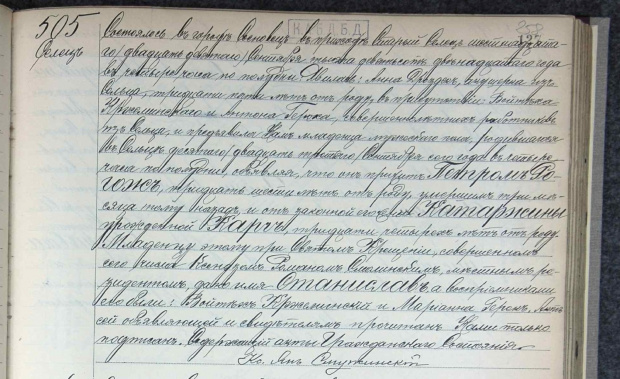 505
Селецъ
Состоялось въ городѣ Сосновицѣ въ приходѣ Старый Селецъ шестнадцата-
го/ двадцать девятаго/ Сентября тысяча девятьсотъ двѣнадцатаго года
въ четыре часа по полудни. Явилась: Анна Дроздзъ, акушерка изъ
Сельца, тридцати пяти лѣтъ отъ роду, въ присутствіи Войтѣха
и Антона совершеннолѣтнихъ работниковъ
изъ Сельца, и предъявила Намъ младенца мужескаго пола, родившагося
въ Сельцѣ десятаго/ двадцать третьяго/ Сентября сего года въ четыре
часа по полудни, объявляя, что онъ прижитъ Петромъ Ро-
гожъ, тридцать шести лѣтъ отъ роду, умершимъ три мѣ-
сяца тому назадъ, и отъ законной его жены Катаржины
урожденной Карчъ, тридцати четырехъ лѣтъ отъ роду.
Младенцу этому при Святомъ Крещеніи, совершенномъ
сего числа Ксендзомъ Романомъ мѣстнымъ ре-
зидентомъ, дано имя Станиславъ, а воспріемниками
его были: Войтѣхъ и Марианна Актъ
сей объявляющей и свидѣтелямъ прочитанъ, Нами только
подписанъ. Содержащій акты Гражданскаго Состоянія
Кс. Янъ